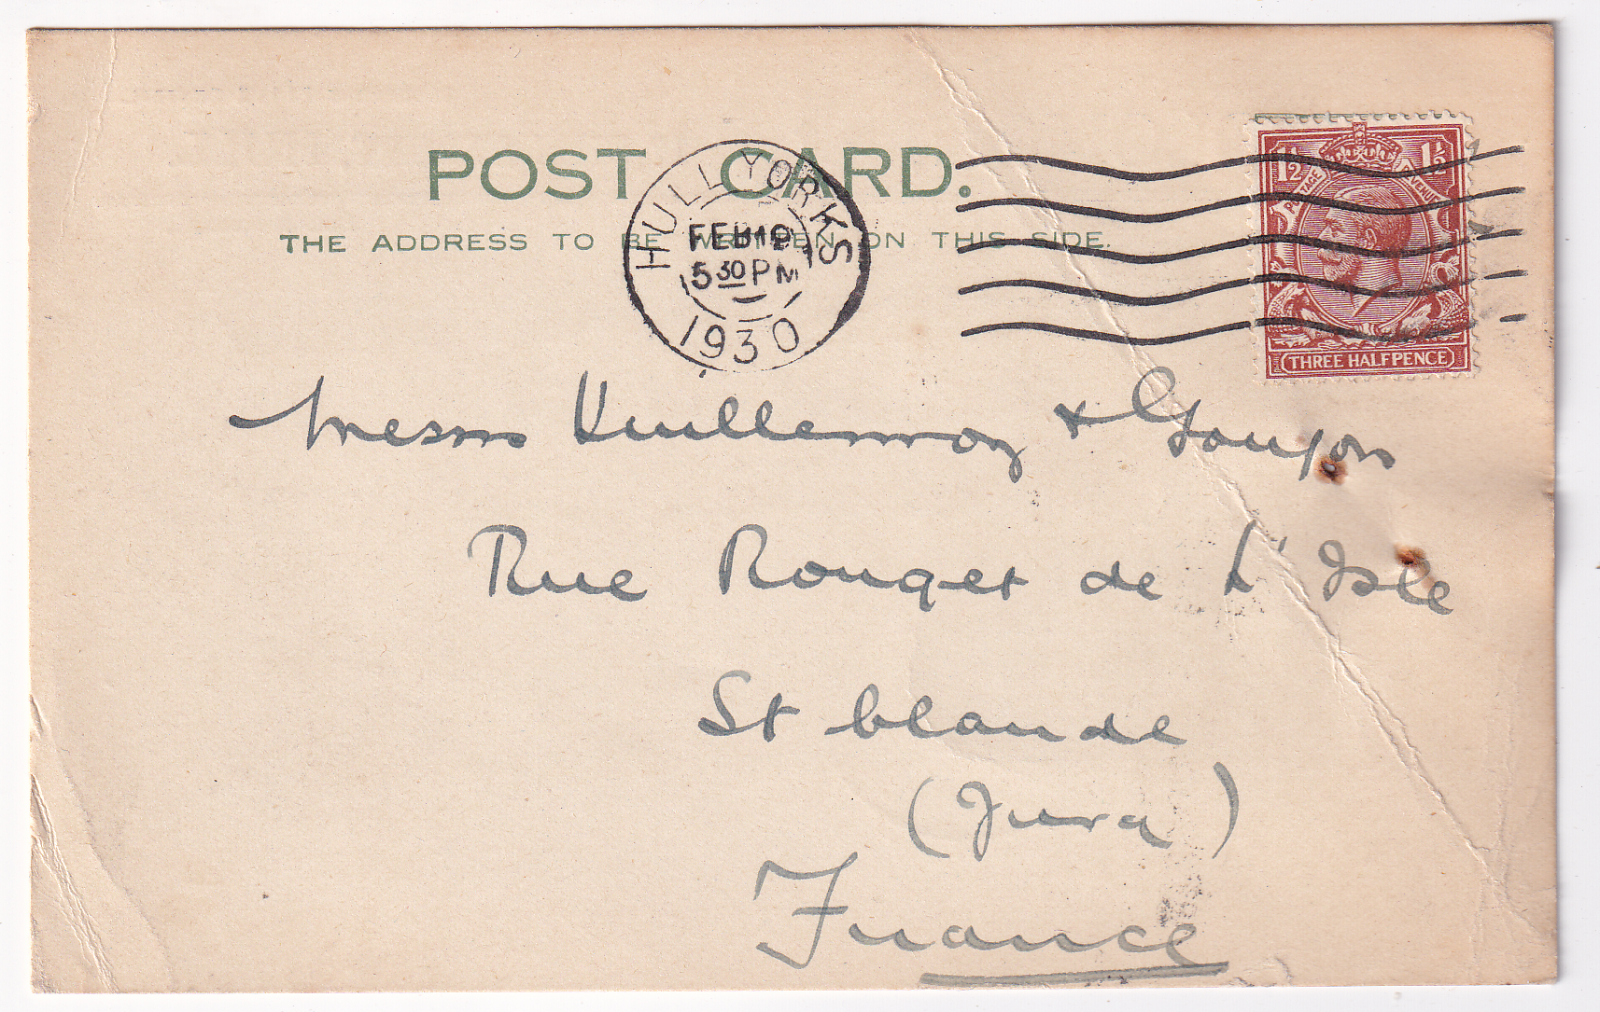 POST CARD.
THE ADDRESS TO BE WRITTEN ON THIS SIDE.
HULL YORKS
FEB 19
5 30 PM
1930
1½ 1½
POSTAGE REVENUE
THREE HALFPENCE
Messrs Vuillermoz & Goujon
Rue Rouget de L'Isle
St Claude
(Jura)
France